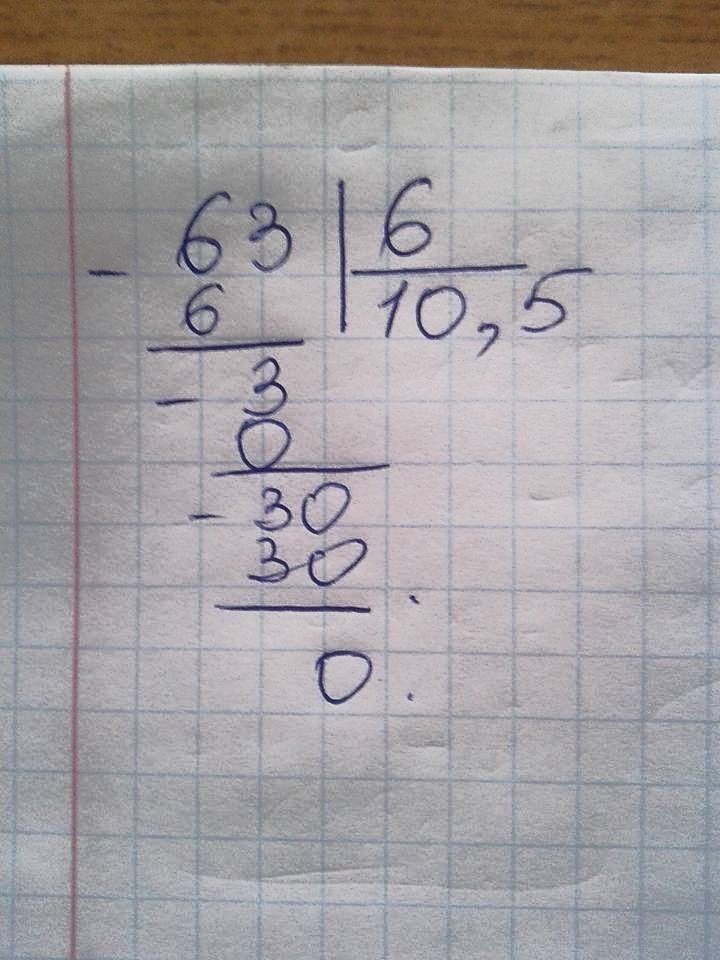 - 63 | 6
6 10,5
- 3
0
- 30
30
0